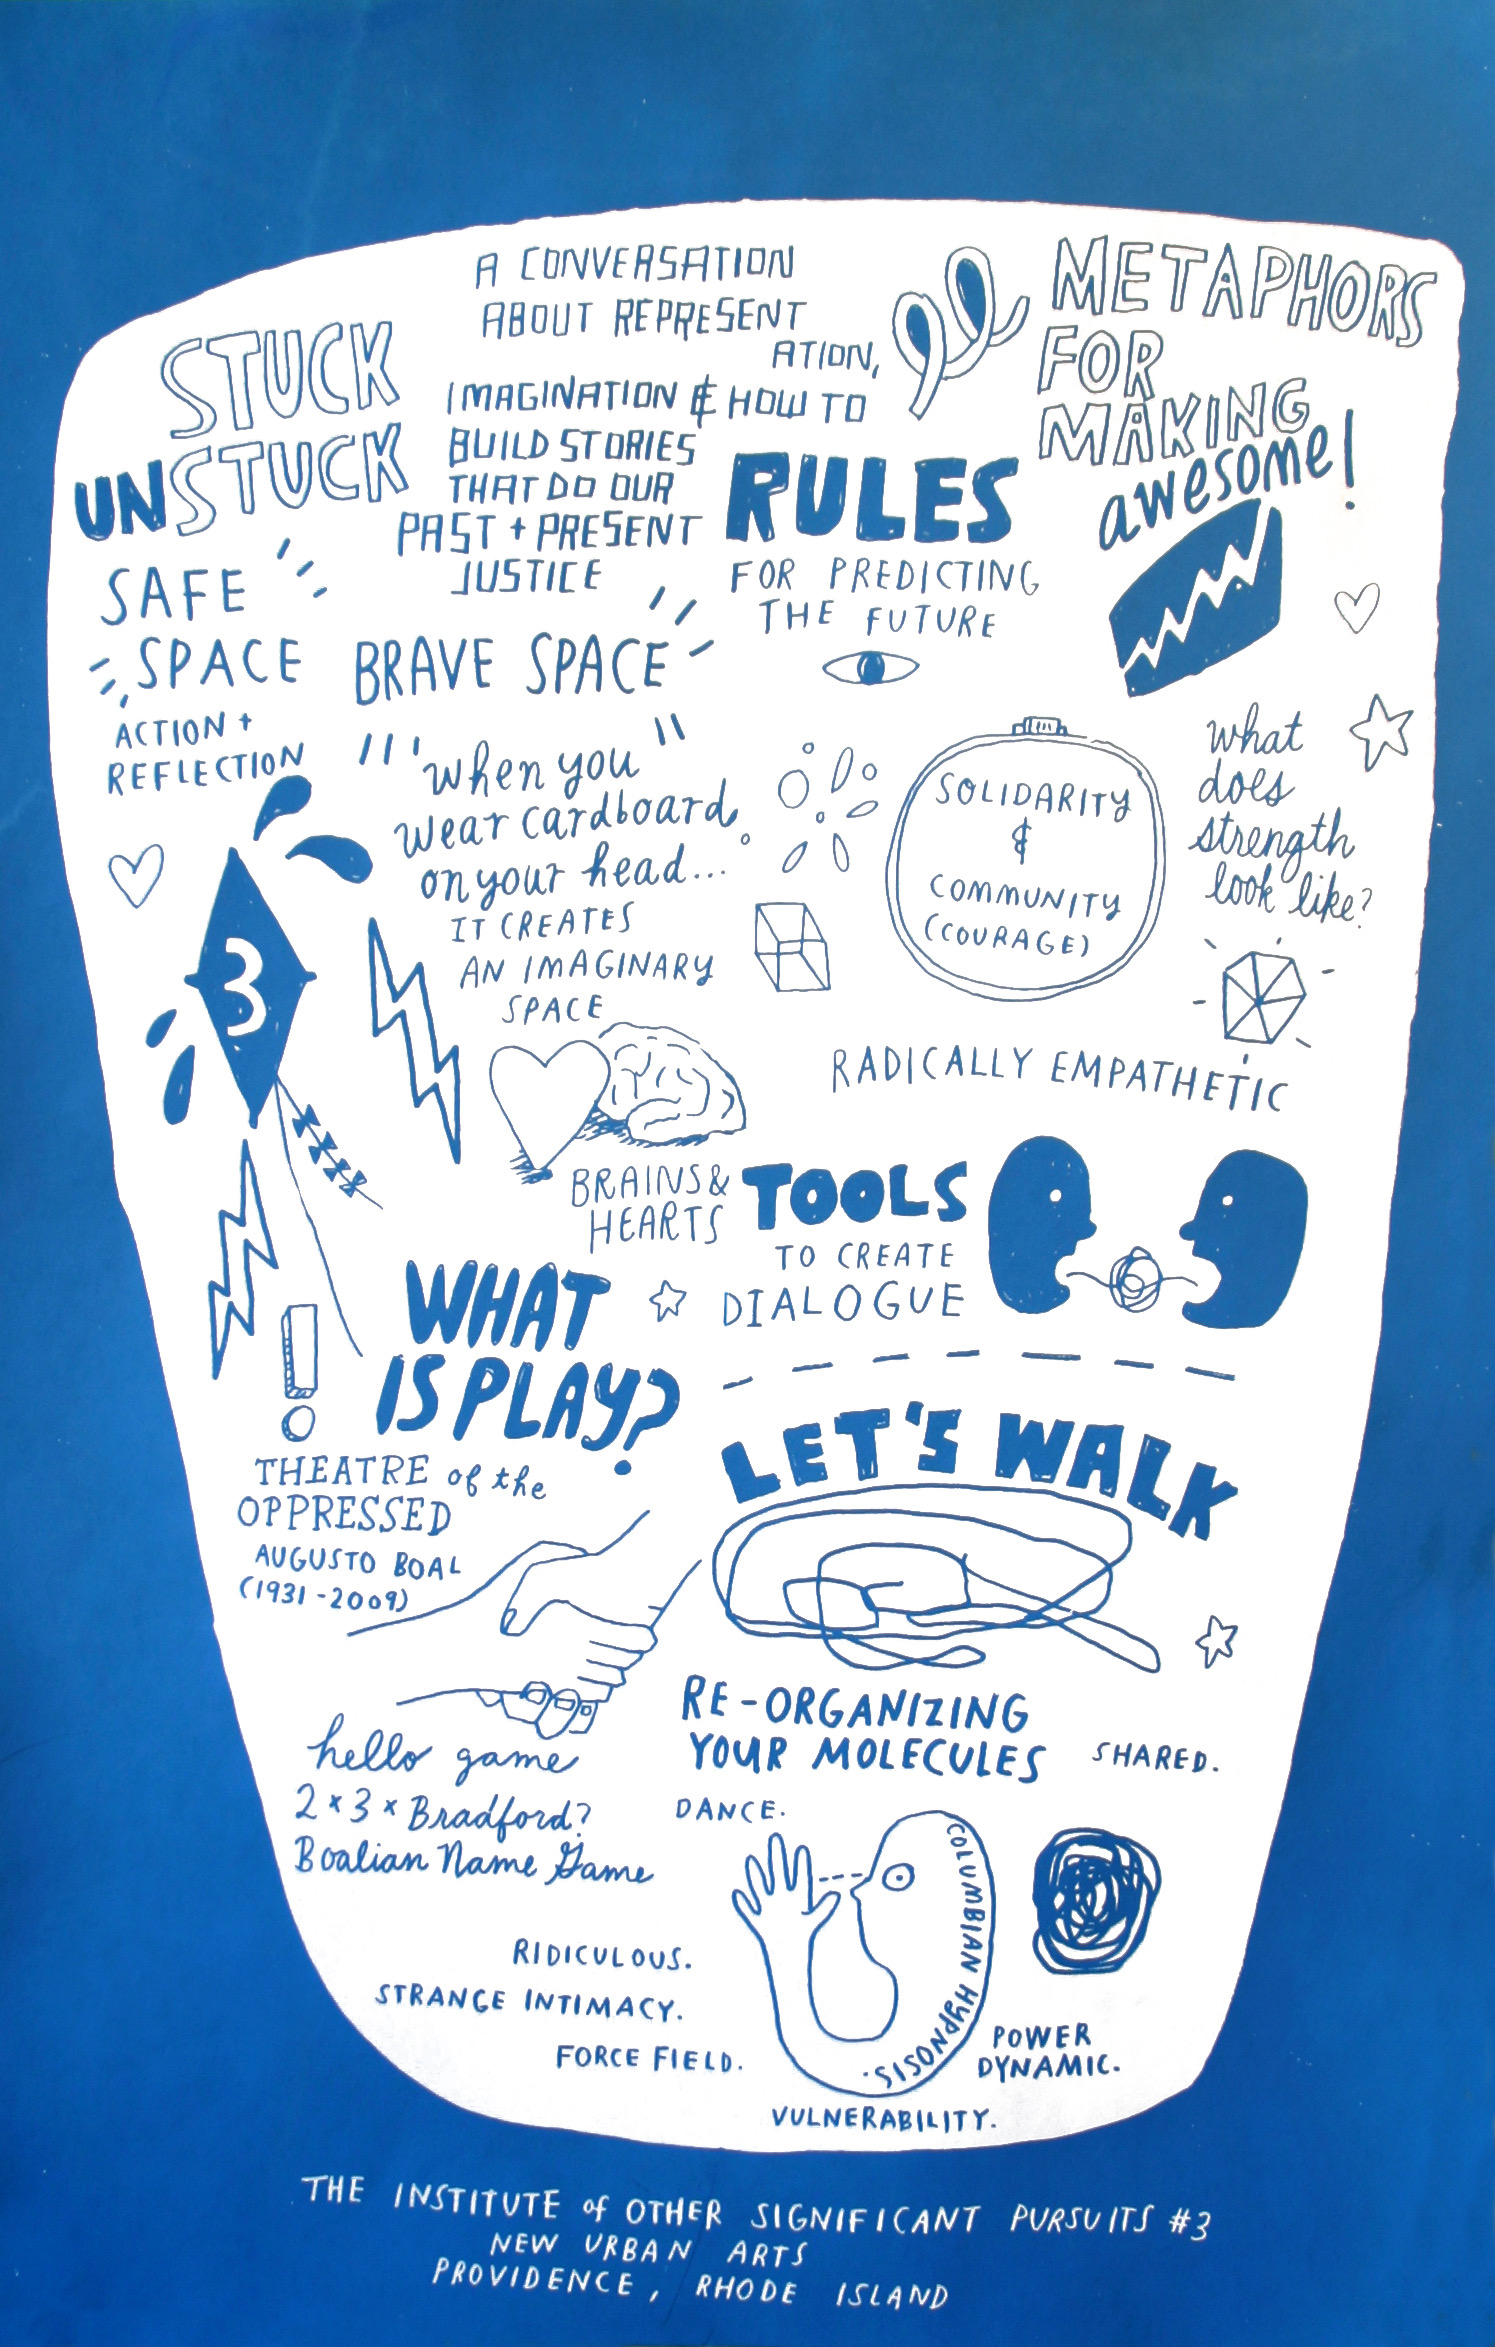 STUCK
UNSTUCK
A CONVERSATION
ABOUT REPRESENT
ATION,
IMAGINATION & HOW TO
BUILD STORIES
THAT DO OUR
PAST + PRESENT
JUSTICE
METAPHORS
FOR
MAKING
awesome!
RULES
FOR PREDICTING
THE FUTURE
SAFE
SPACE
BRAVE SPACE
ACTION +
REFLECTION
"when you
wear cardboard
on your head..."
IT CREATES
AN IMAGINARY
SPACE
SOLIDARITY
&
COMMUNITY
(COURAGE)
what
does
strength
look like?
3
RADICALLY EMPATHETIC
BRAINS &
HEARTS
TOOLS
TO CREATE
DIALOGUE
WHAT
IS PLAY?
!
THEATRE of the
OPPRESSED
AUGUSTO BOAL
(1931-2009)
LET'S WALK
hello game
2 x 3 x Bradford?
Boalian Name Game
RE-ORGANIZING
YOUR MOLECULES
SHARED.
DANCE.
COLUMBIAN HYPNOSIS.
RIDICULOUS.
STRANGE INTIMACY.
FORCE FIELD.
POWER
DYNAMIC.
VULNERABILITY.
THE INSTITUTE of OTHER SIGNIFICANT PURSUITS #3
NEW URBAN ARTS
PROVIDENCE, RHODE ISLAND